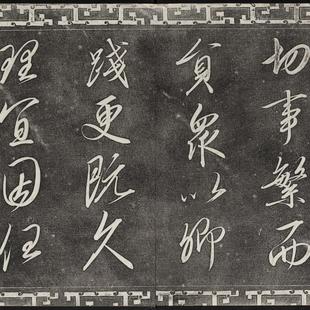 切事繁而
員衆以卿
踐更既久
理宜因任